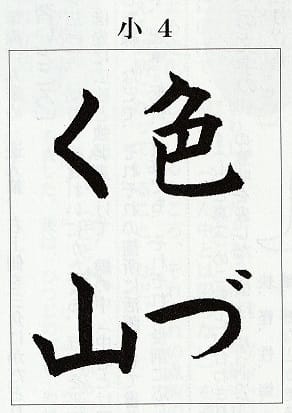 小4
色づ
く山